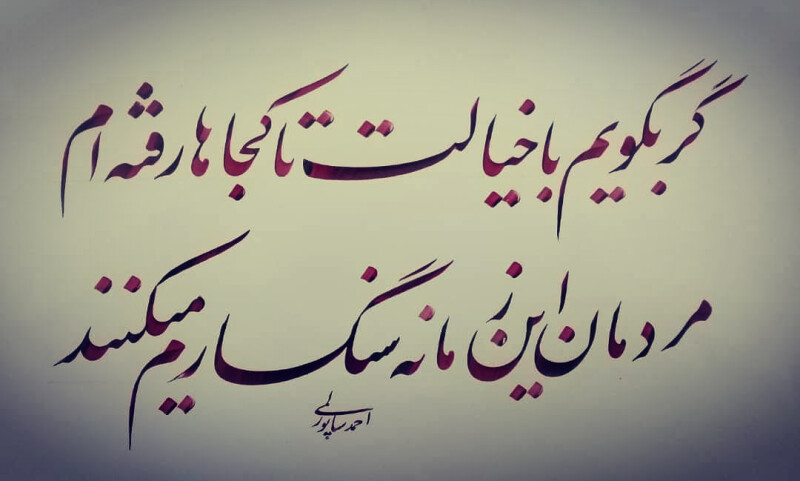 گر بگویم با خیالت تا کجاها رفته ام
مردمان این زمانه سنگسارم میکنند
احمد ساپورلی